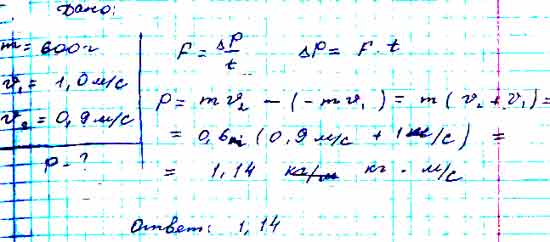 Дано:
m = 600 г
v₁ = 1,0 м/с
v₂ = 0,9 м/с
p - ?
F = ΔP/t    ΔP = F · t
P = m v₂ - (- m v₁) = m (v₂ + v₁) =
= 0,6 (0,9 м/с + 1 м/с) =
= 1,14 кг · м/с
Ответ: 1,14